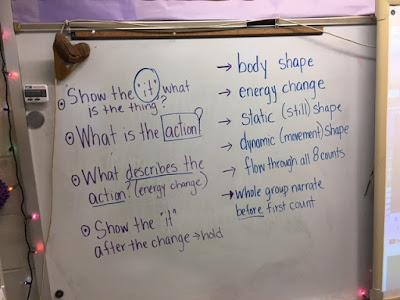 ⊙ Show the "it" what
is the thing?
⊙ What is the action?
⊙ What describes the
action? (energy change)
⊙ Show the "it"
after the change → hold
→ body shape
→ energy change
→ static (still) shape
→ dynamic (movement) shape
→ flow through all 8 counts
→ whole group narrate
before first count